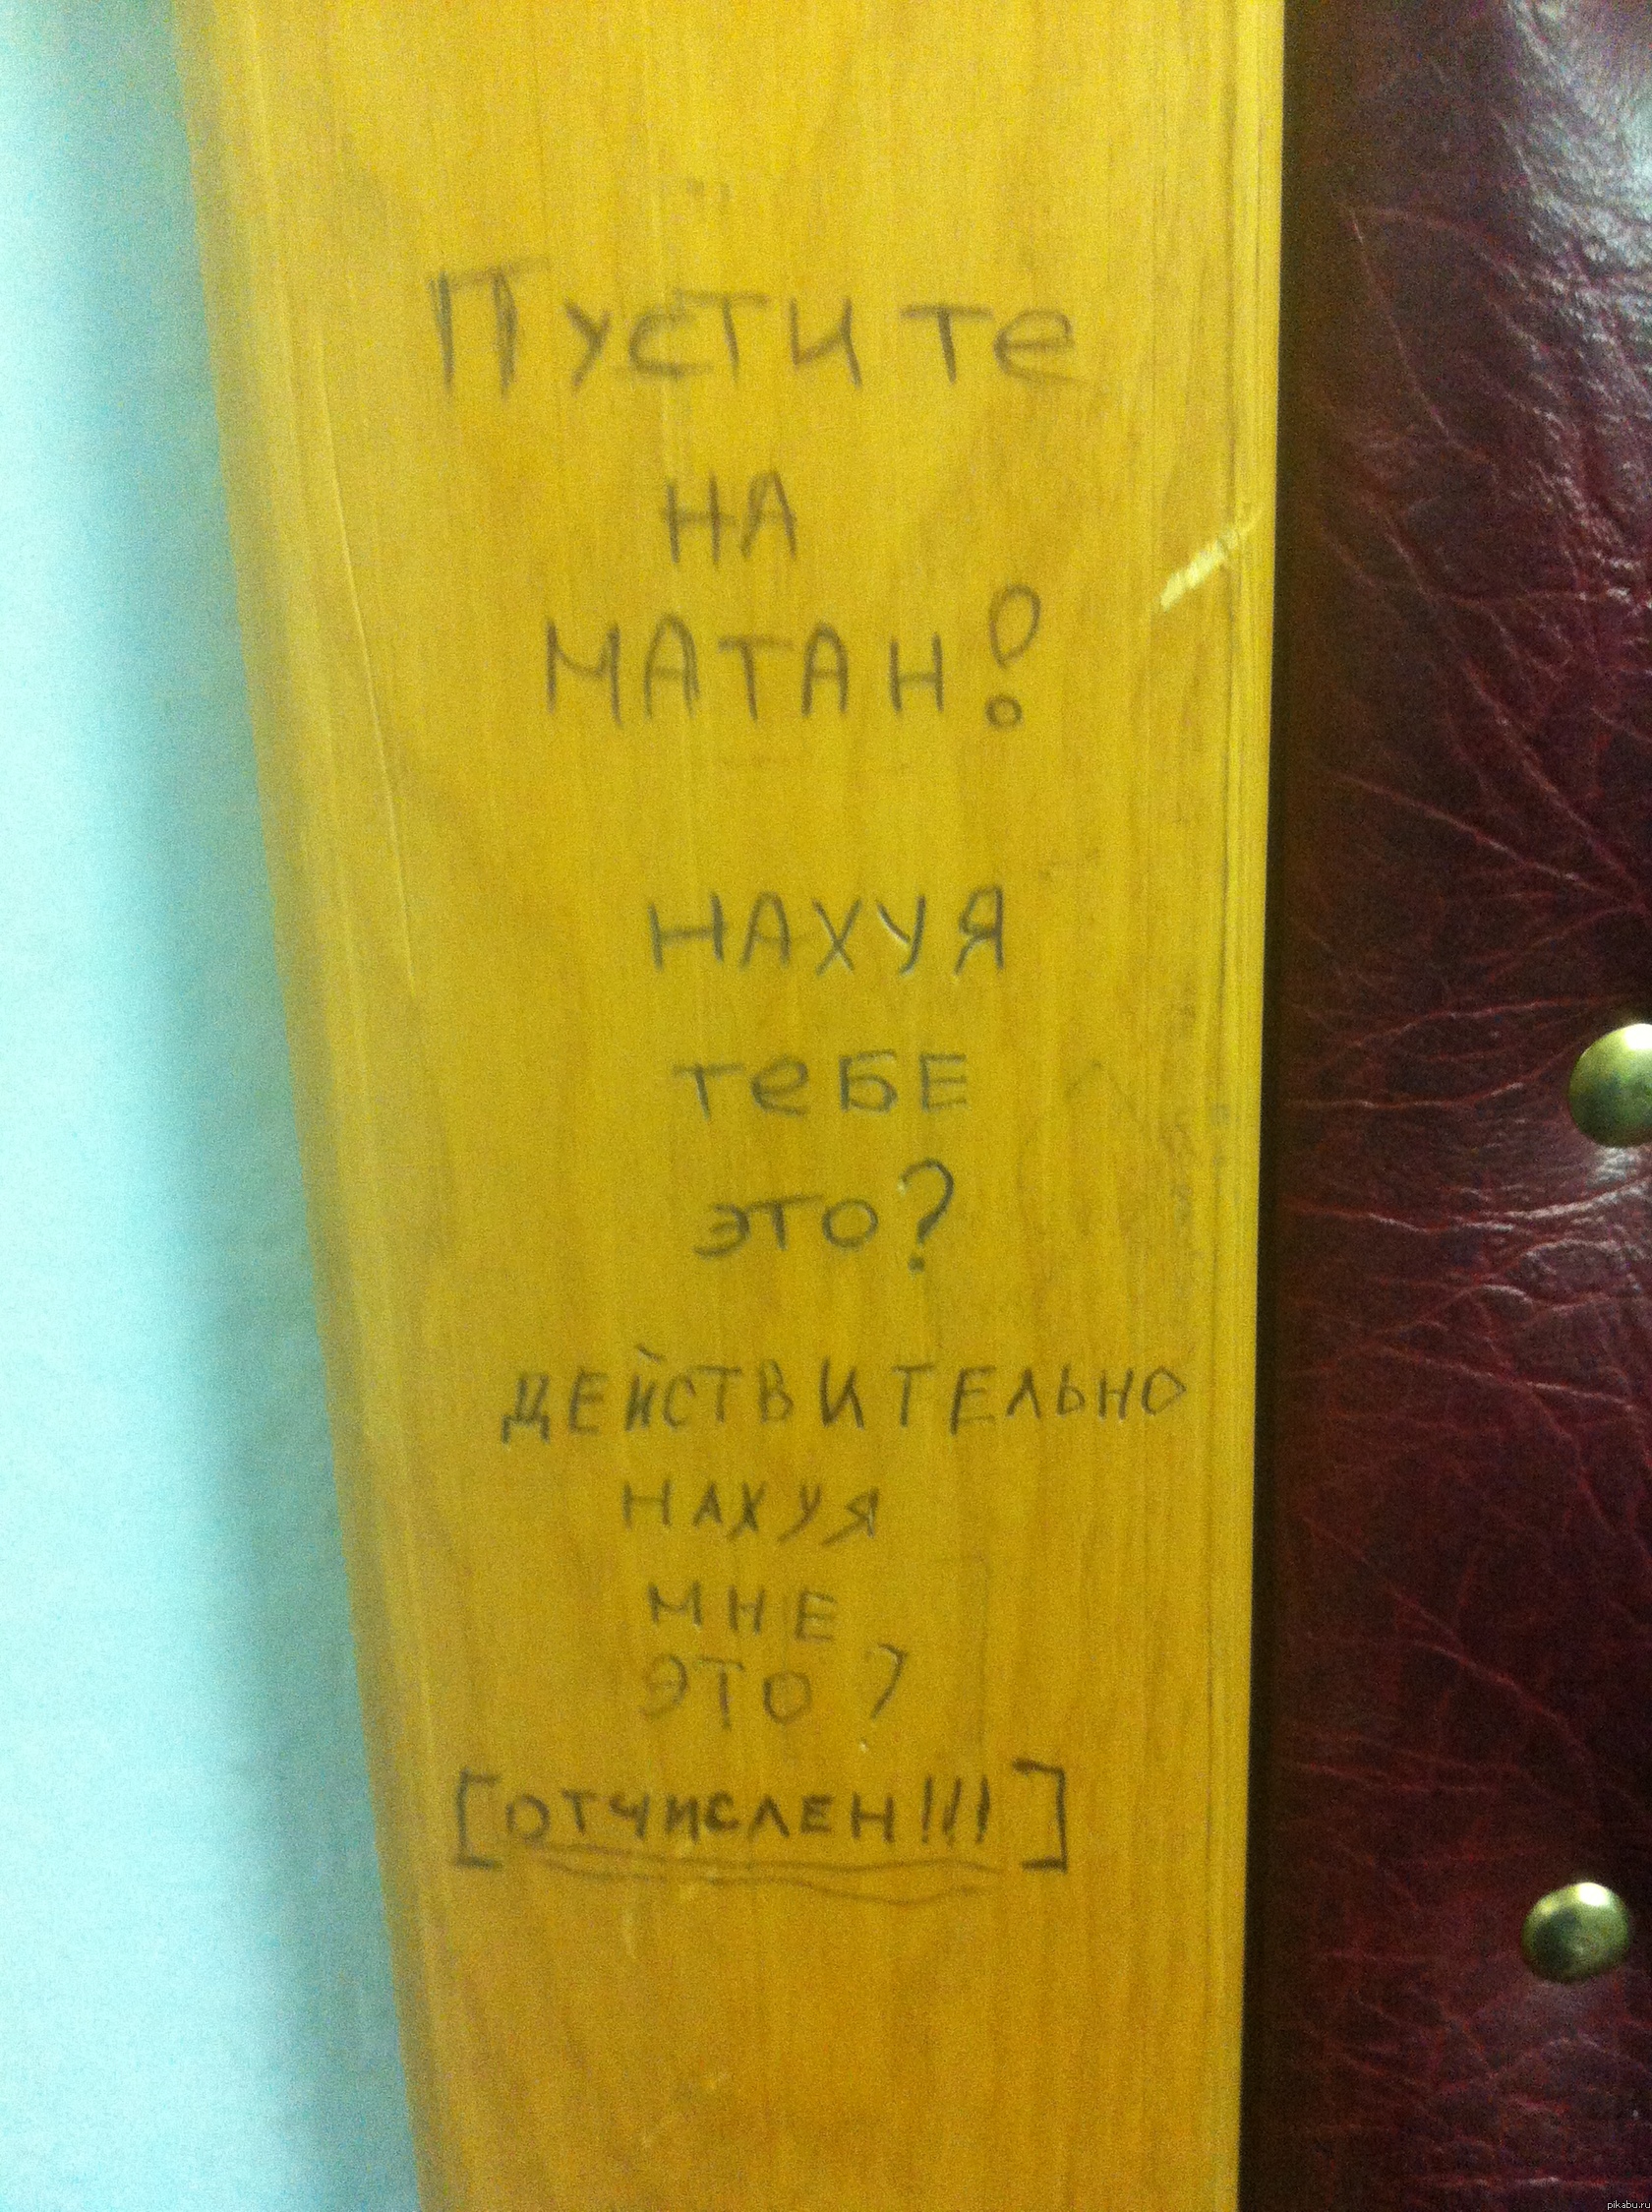 Пустите
НА
МАТАН!
НАХУЯ
теБЕ
это?
ДЕЙСТВИТЕЛЬНО
НАХУЯ
МНЕ
ЭТО?
[ОТЧИСЛЕН!!!]
pikabu.ru